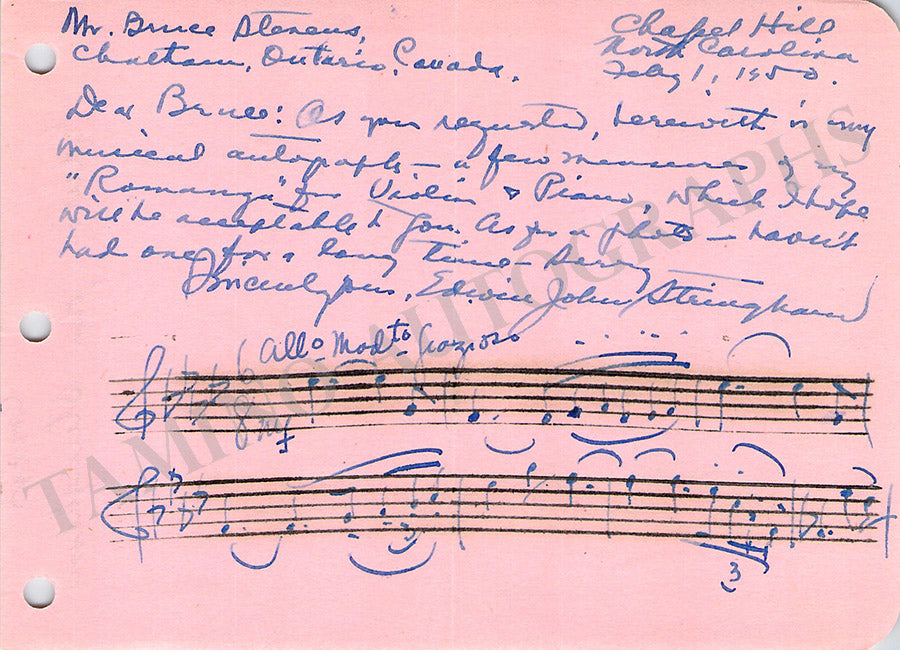 Mr. Bruce Stevens,
Chatham, Ontario, Canada.
Chapel Hill
North Carolina
Feby 1, 1950.
Dear Bruce: As you requested, herewith is my
musical autograph — a few measures of my
"Romanza" for Violin & Piano, which I hope
will be acceptable to you. As for a photo — haven't
had one for a long time — Sorry
Sincerely yours, Edwin John Stringham
Allo Modto Grazioso
6
8 mf
3
3
TAMINO AUTOGRAPHS